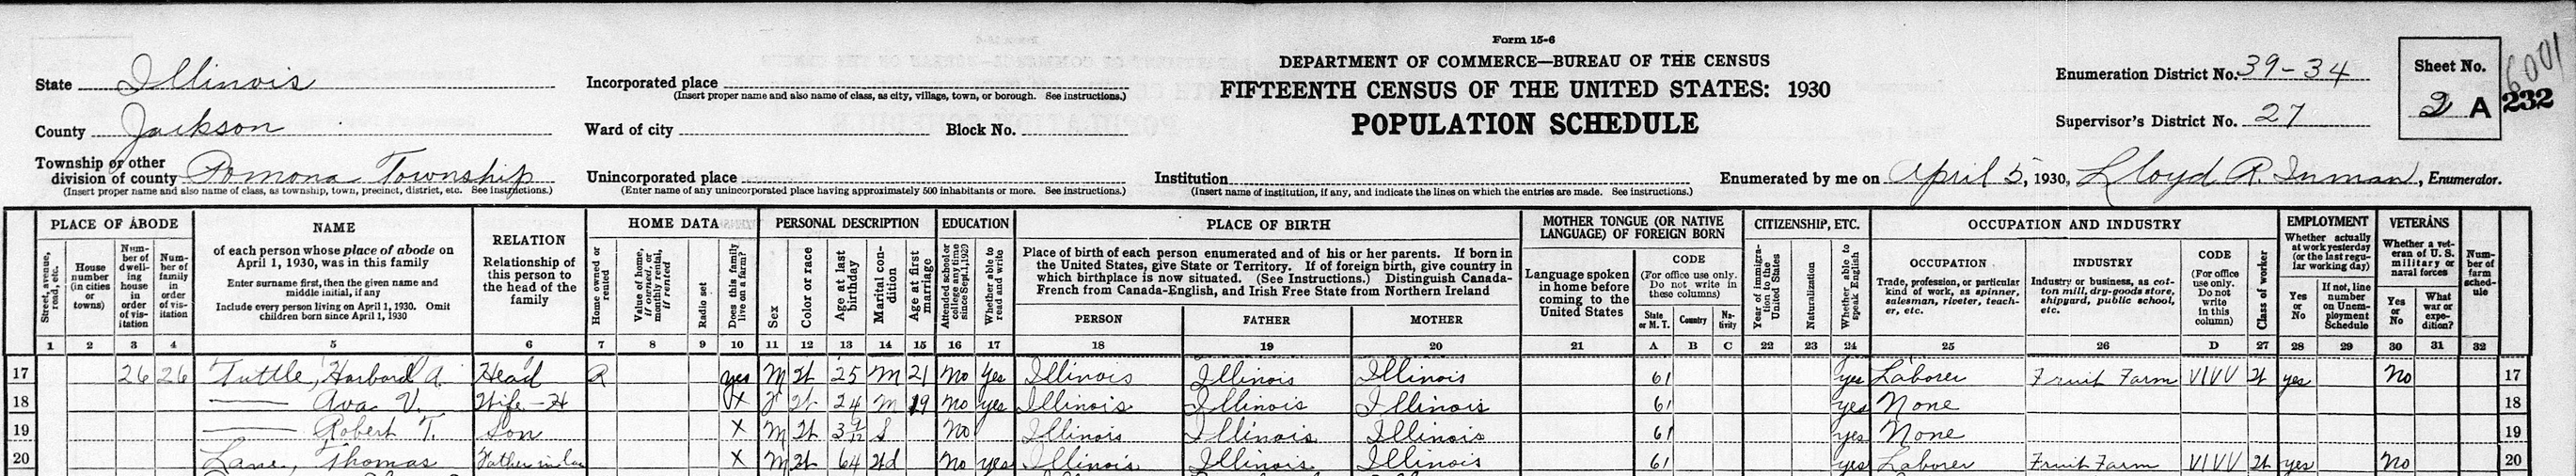 Form 15-6
DEPARTMENT OF COMMERCE—BUREAU OF THE CENSUS
FIFTEENTH CENSUS OF THE UNITED STATES: 1930
POPULATION SCHEDULE
State Illinois
County Jackson
Township or other division of county Pomona Township
(Insert proper name and also name of class, as township, town, precinct, district, etc. See instructions.)
Incorporated place
(Insert proper name and also name of class, as city, village, town, or borough. See instructions.)
Ward of city Block No.
Unincorporated place
(Enter name of any unincorporated place having approximately 500 inhabitants or more. See instructions.)
Institution
(Insert name of institution, if any, and indicate the lines on which the entries are made. See instructions.)
Enumeration District No. 39-34
Supervisor's District No. 27
Sheet No.
2 A
232
6001
Enumerated by me on April 5, 1930, Lloyd R. Inman, Enumerator.
PLACE OF ABODE
Street, avenue, road, etc.
House number (in cities or towns)
Number of dwelling house in order of visitation
Number of family in order of visitation
NAME
of each person whose place of abode on April 1, 1930, was in this family
Enter surname first, then the given name and middle initial, if any
Include every person living on April 1, 1930. Omit children born since April 1, 1930
RELATION
Relationship of this person to the head of the family
HOME DATA
Home owned or rented
Value of home, if owned, or monthly rental, if rented
Radio set
Does this family live on a farm?
PERSONAL DESCRIPTION
Sex
Color or race
Age at last birthday
Marital condition
Age at first marriage
EDUCATION
Attended school or college any time since Sept. 1, 1929
Whether able to read and write
PLACE OF BIRTH
Place of birth of each person enumerated and of his or her parents. If born in the United States, give State or Territory. If of foreign birth, give country in which birthplace is now situated. (See Instructions.) Distinguish Canada-French from Canada-English, and Irish Free State from Northern Ireland
PERSON FATHER MOTHER
MOTHER TONGUE (OR NATIVE LANGUAGE) OF FOREIGN BORN
Language spoken in home before coming to the United States
CODE
(For office use only. Do not write in these columns)
State or M. T. Country Nativity
CITIZENSHIP, ETC.
Year of immigration to the United States
Naturalization
Whether able to speak English
OCCUPATION AND INDUSTRY
OCCUPATION
Trade, profession, or particular kind of work, as spinner, salesman, riveter, teacher, etc.
INDUSTRY
Industry or business, as cotton mill, dry-goods store, shipyard, public school, etc.
CODE
(For office use only. Do not write in this column)
Class of worker
EMPLOYMENT
Whether actually at work yesterday (or the last regular working day)
Yes or No
If not, line number on Unemployment Schedule
VETERANS
Whether a veteran of U. S. military or naval forces
Yes or No
What war or expedition?
Number of farm schedule
1 2 3 4 5 6 7 8 9 10 11 12 13 14 15 16 17 18 19 20 21 A B C 22 23 24 25 26 D 27 28 29 30 31 32
17 26 26 Tuttle, Harbard A. Head R yes M W 25 M 21 No Yes Illinois Illinois Illinois 61 yes Laborer Fruit Farm VIVV W yes No 17
18 — Ava V. Wife-H X F W 24 M 19 No yes Illinois Illinois Illinois 61 yes None 18
19 — Robert T. Son X M W 3 9/12 S No Illinois Illinois Illinois 61 yes None 19
20 Lane, Thomas Father in law X M W 64 Wd No yes Illinois Illinois Illinois 61 yes Laborer Fruit Farm VIVV W yes No 20